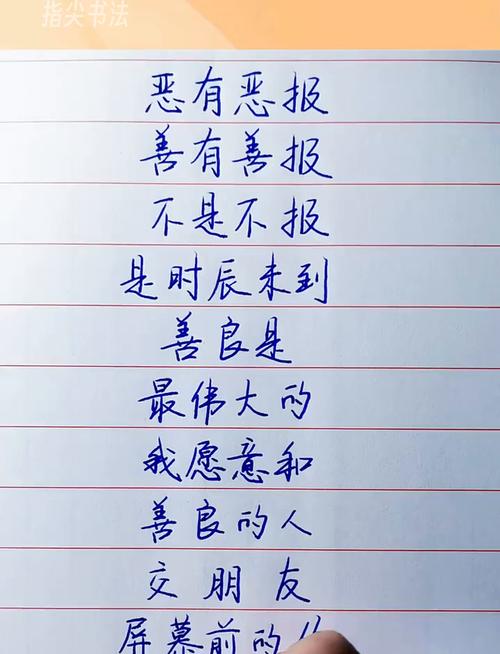 指尖书法
恶有恶报
善有善报
不是不报
是时辰未到
善良是
最伟大的
我愿意和
善良的人
交朋友
屏幕前的